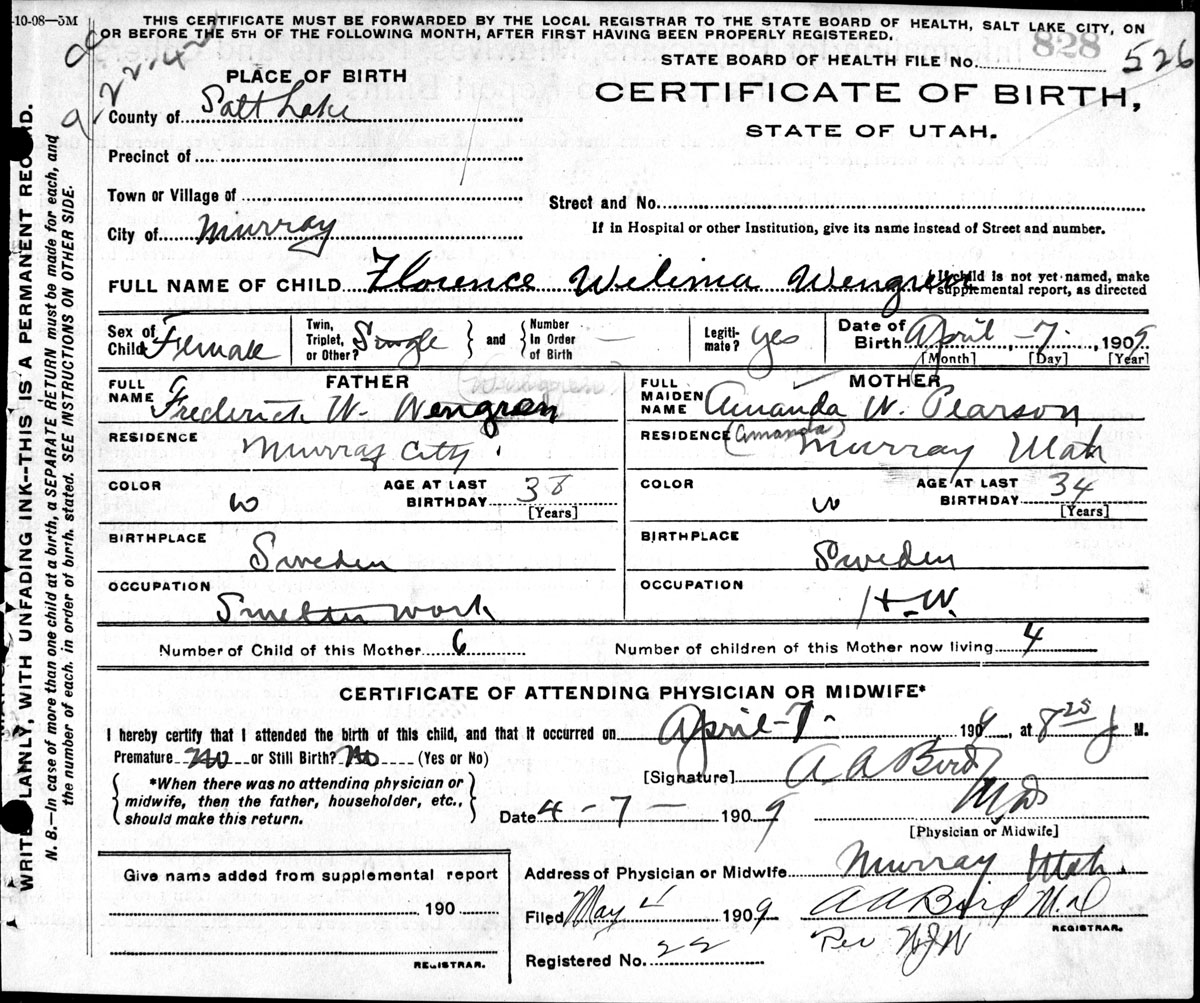 -10-08—5M
THIS CERTIFICATE MUST BE FORWARDED BY THE LOCAL REGISTRAR TO THE STATE BOARD OF HEALTH, SALT LAKE CITY, ON
OR BEFORE THE 5TH OF THE FOLLOWING MONTH, AFTER FIRST HAVING BEEN PROPERLY REGISTERED.
STATE BOARD OF HEALTH FILE No. 828 526
PLACE OF BIRTH
CERTIFICATE OF BIRTH,
STATE OF UTAH.
County of Salt Lake
Precinct of
Town or Village of
Street and No.
City of Murray
If in Hospital or other Institution, give its name instead of Street and number.
FULL NAME OF CHILD Florence Welima Wengren
If child is not yet named, make
supplemental report, as directed
Sex of Child Female
Twin, Triplet, or Other? Single
and
Number In Order of Birth —
Legiti-mate? yes
Date of Birth April -7- , 1909
[Month] [Day] [Year]
FATHER
FULL NAME Frederick W. Wengren
RESIDENCE Murray City
COLOR w
AGE AT LAST BIRTHDAY 38
[Years]
BIRTHPLACE
Sweden
OCCUPATION
Smelter work
MOTHER
FULL MAIDEN NAME Amanda W. Pearson
RESIDENCE (Amanda) Murray Utah
COLOR w
AGE AT LAST BIRTHDAY 34
[Years]
BIRTHPLACE
Sweden
OCCUPATION
H.W.
Number of Child of this Mother 6
Number of children of this Mother now living 4
CERTIFICATE OF ATTENDING PHYSICIAN OR MIDWIFE*
I hereby certify that I attended the birth of this child, and that it occurred on April-7- 1909, at 8 25 M.
Premature No or Still Birth? No (Yes or No)
*When there was no attending physician or
midwife, then the father, householder, etc.,
should make this return.
[Signature] A A Bird
MD
Date 4-7- 1909
[Physician or Midwife]
Give name added from supplemental report
190
REGISTRAR.
Address of Physician or Midwife Murray Utah.
Filed May 1909
A A Bird M.D
REGISTRAR.
Registered No. 22
Per
WRITE PLAINLY, WITH UNFADING INK--THIS IS A PERMANENT RECORD.
N. B.—In case of more than one child at a birth, a SEPARATE RETURN must be made for each, and
the number of each, in order of birth, stated. SEE INSTRUCTIONS ON OTHER SIDE.